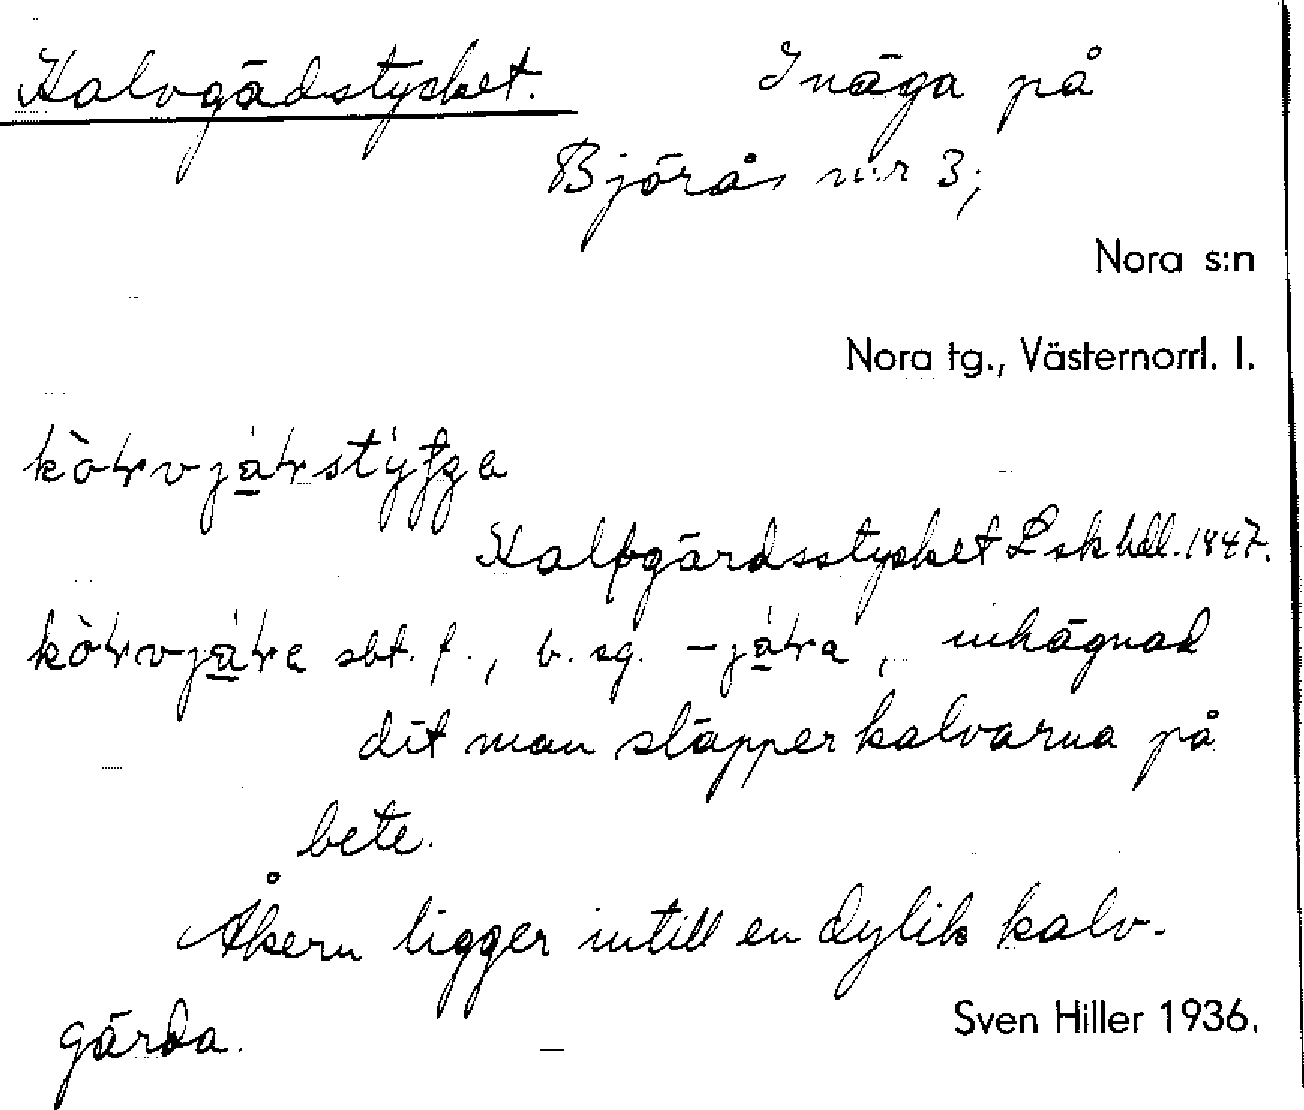 Kalvgädstycket. Inäga på
Björås nr 3;
Nora s:n
Nora tg., Västernorrl. l.
Kalfgärdsstycket Lskhdl. 1847.
sbt. f., b. sg. inhägnad
dit man släpper kalvarna på
bete.
Åkern ligger intill en dylik kalv-
gärda.
Sven Hiller 1936.